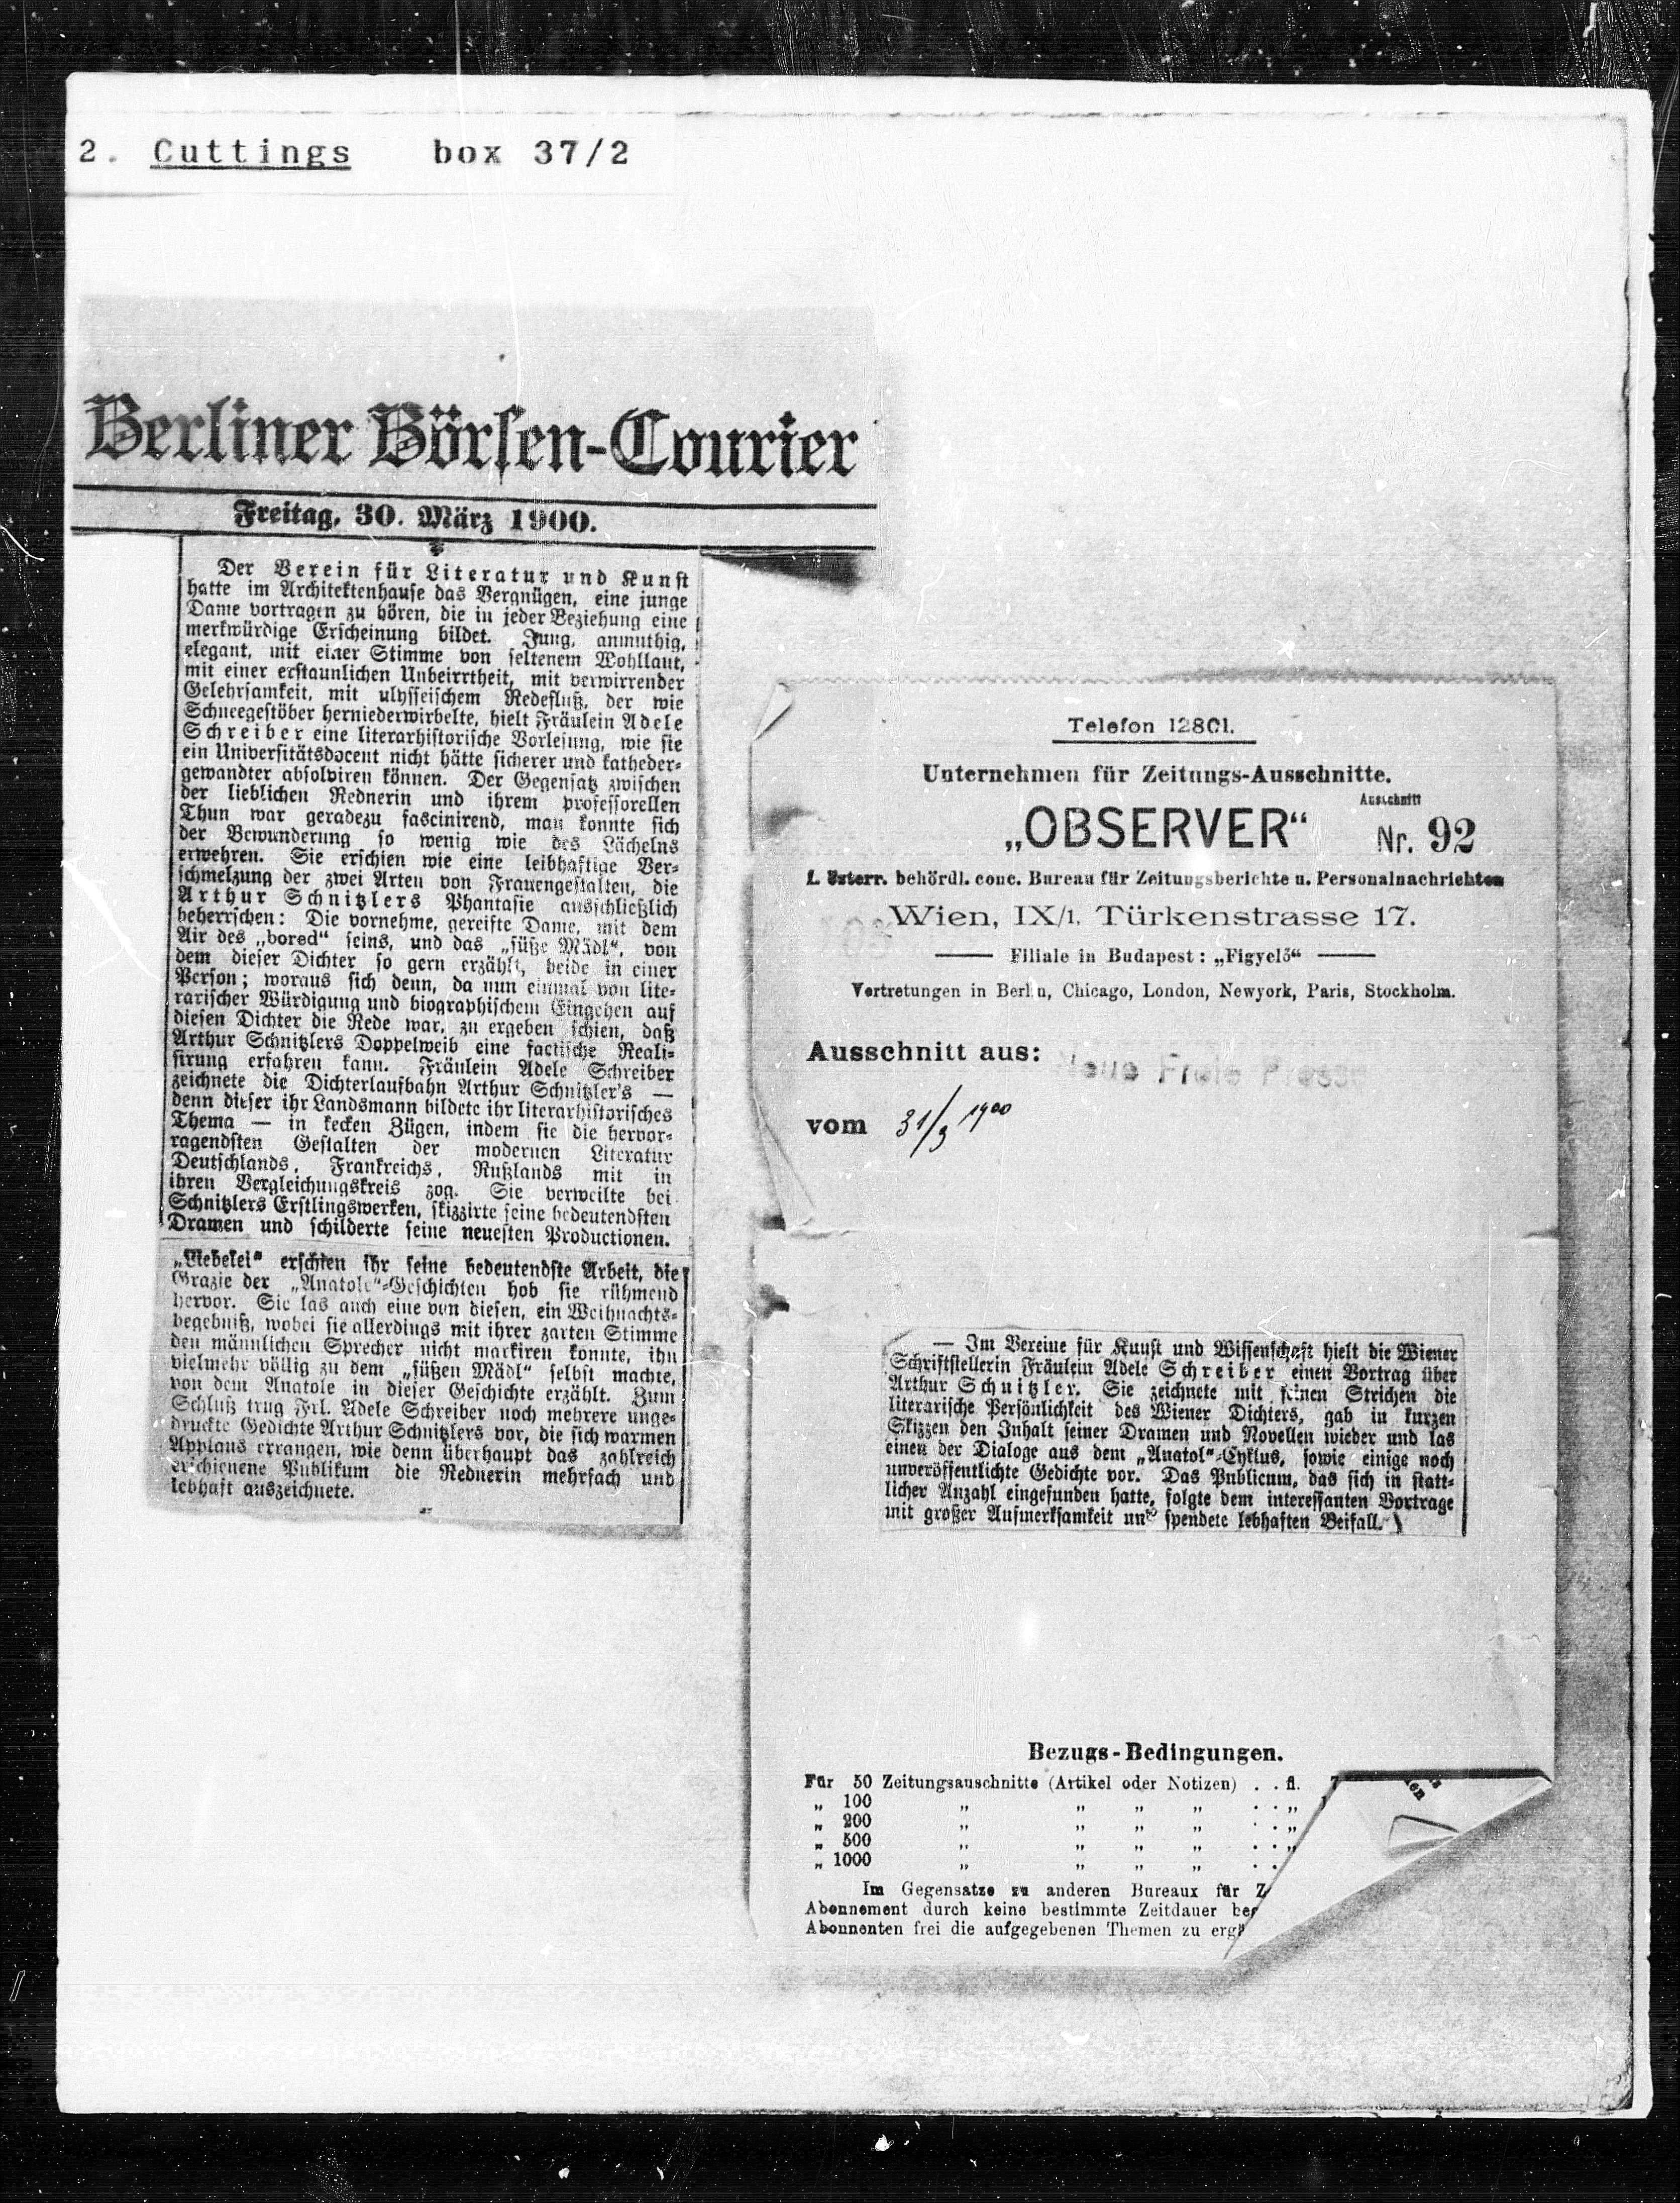 2. Cuttings box 37/2
Berliner Börsen-Courier
Freitag, 30. März 1900.
Der Verein für Literatur und Kunst
hatte im Architektenhause das Vergnügen, eine junge
Dame vortragen zu hören, die in jeder Beziehung eine
merkwürdige Erscheinung bildet. Jung, anmuthig,
elegant, mit einer Stimme von seltenem Wohllaut,
mit einer erstaunlichen Unbeirrtheit, mit verwirrender
Gelehrsamkeit, mit ulysseischem Redefluß, der wie
Schneegestöber herniederwirbelte, hielt Fräulein Adele
Schreiber eine literarhistorische Vorlesung, wie sie
ein Universitätsdocent nicht hätte sicherer und katheder-
gewandter absolviren können. Der Gegensatz zwischen
der lieblichen Rednerin und ihrem professorellen
Thun war geradezu fascinirend, man konnte sich
der Bewunderung so wenig wie des Lächelns
erwehren. Sie erschien wie eine leibhaftige Ver-
schmelzung der zwei Arten von Frauengestalten, die
Arthur Schnitzlers Phantasie ausschließlich
beherrschen: Die vornehme, gereifte Dame, mit dem
Air des „bored“ seins, und das „süße Mädl“, von
dem dieser Dichter so gern erzählt, beide in einer
Person; woraus sich denn, da nun einmal von lite-
rarischer Würdigung und biographischem Eingehen auf
diesen Dichter die Rede war, zu ergeben schien, daß
Arthur Schnitzlers Doppelweib eine factische Reali-
sirung erfahren kann. Fräulein Adele Schreiber
zeichnete die Dichterlaufbahn Arthur Schnitzler's —
denn dieser ihr Landsmann bildete ihr literarhistorisches
Thema — in kecken Zügen, indem sie die hervor-
ragendsten Gestalten der modernen Literatur
Deutschlands, Frankreichs, Rußlands mit in
ihren Vergleichungskreis zog. Sie verweilte bei
Schnitzlers Erstlingswerken, skizzirte seine bedeutendsten
Dramen und schilderte seine neuesten Productionen.
„Liebelei“ erschien ihr seine bedeutendste Arbeit, die
Grazie der „Anatole“-Geschichten hob sie rühmend
hervor. Sie las auch eine von diesen, ein Weihnachts-
begebniß, wobei sie allerdings mit ihrer zarten Stimme
den männlichen Sprecher nicht markiren konnte, ihn
vielmehr völlig zu dem „süßen Mädl“ selbst machte,
von dem Anatole in dieser Geschichte erzählt. Zum
Schluß trug Frl. Adele Schreiber noch mehrere unge-
druckte Gedichte Arthur Schnitzlers vor, die sich warmen
Applaus errangen, wie denn überhaupt das zahlreich
erschienene Publikum die Rednerin mehrfach und
lebhaft auszeichnete.
Telefon 12801.
Unternehmen für Zeitungs-Ausschnitte.
„OBSERVER“
Ausschnitt
Nr. 92
I. österr. behördl. conc. Bureau für Zeitungsberichte u. Personalnachrichten
Wien, IX/1, Türkenstrasse 17.
— Filiale in Budapest: „Figyelő“ —
Vertretungen in Berlin, Chicago, London, Newyork, Paris, Stockholm.
Ausschnitt aus: Neue Freie Presse
vom 31/3 1900
— Im Vereine für Kunst und Wissenschaft hielt die Wiener
Schriftstellerin Fräulein Adele Schreiber einen Vortrag über
Arthur Schnitzler. Sie zeichnete mit feinen Strichen die
literarische Persönlichkeit des Wiener Dichters, gab in kurzen
Skizzen den Inhalt seiner Dramen und Novellen wieder und las
einen der Dialoge aus dem „Anatol“-Cyklus, sowie einige noch
unveröffentlichte Gedichte vor. Das Publicum, das sich in statt-
licher Anzahl eingefunden hatte, folgte dem interessanten Vortrage
mit großer Aufmerksamkeit und spendete lebhaften Beifall.
Bezugs-Bedingungen.
Für 50 Zeitungsauschnitte (Artikel oder Notizen) . . fl. 7
„ 100 „ „ „ „ . . „ 1
„ 200 „ „ „ „ . . „
„ 500 „ „ „ „ . . „
„ 1000 „ „ „ „ . .
Im Gegensatze zu anderen Bureaux für Z
Abonnement durch keine bestimmte Zeitdauer beg
Abonnenten frei die aufgegebenen Themen zu ergä